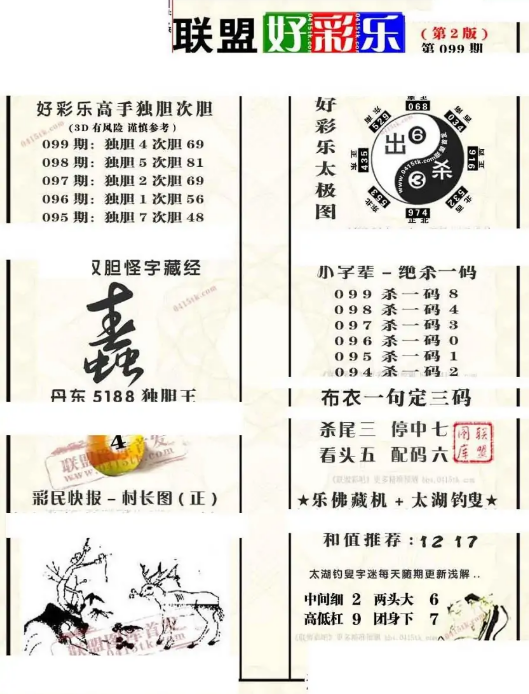 联盟 好彩乐
(第2版)
第099期
好彩乐高手独胆次胆
(3D有风险 谨慎参考)
099期: 独胆4次胆69
098期: 独胆5次胆81
097期: 独胆2次胆69
096期: 独胆1次胆56
095期: 独胆7次胆48
双胆怪字藏经
丹东5188独胆王
4
彩民快报-村长图(正)
好彩乐太极图
068
034
916
974
532
435
529
出 6
3 杀
小字辈-绝杀一码
099 杀一码 8
098 杀一码 4
097 杀一码 3
096 杀一码 0
095 杀一码 1
094 杀一码 2
布衣一句定三码
杀尾三 停中七
看头五 配码六
联盟图库
★乐佛藏机+太湖钓叟★
和值推荐:12 17
太湖钓叟字迷每天随期更新浅解..
中间细 2 两头大 6
高低杠 9 团身下 7